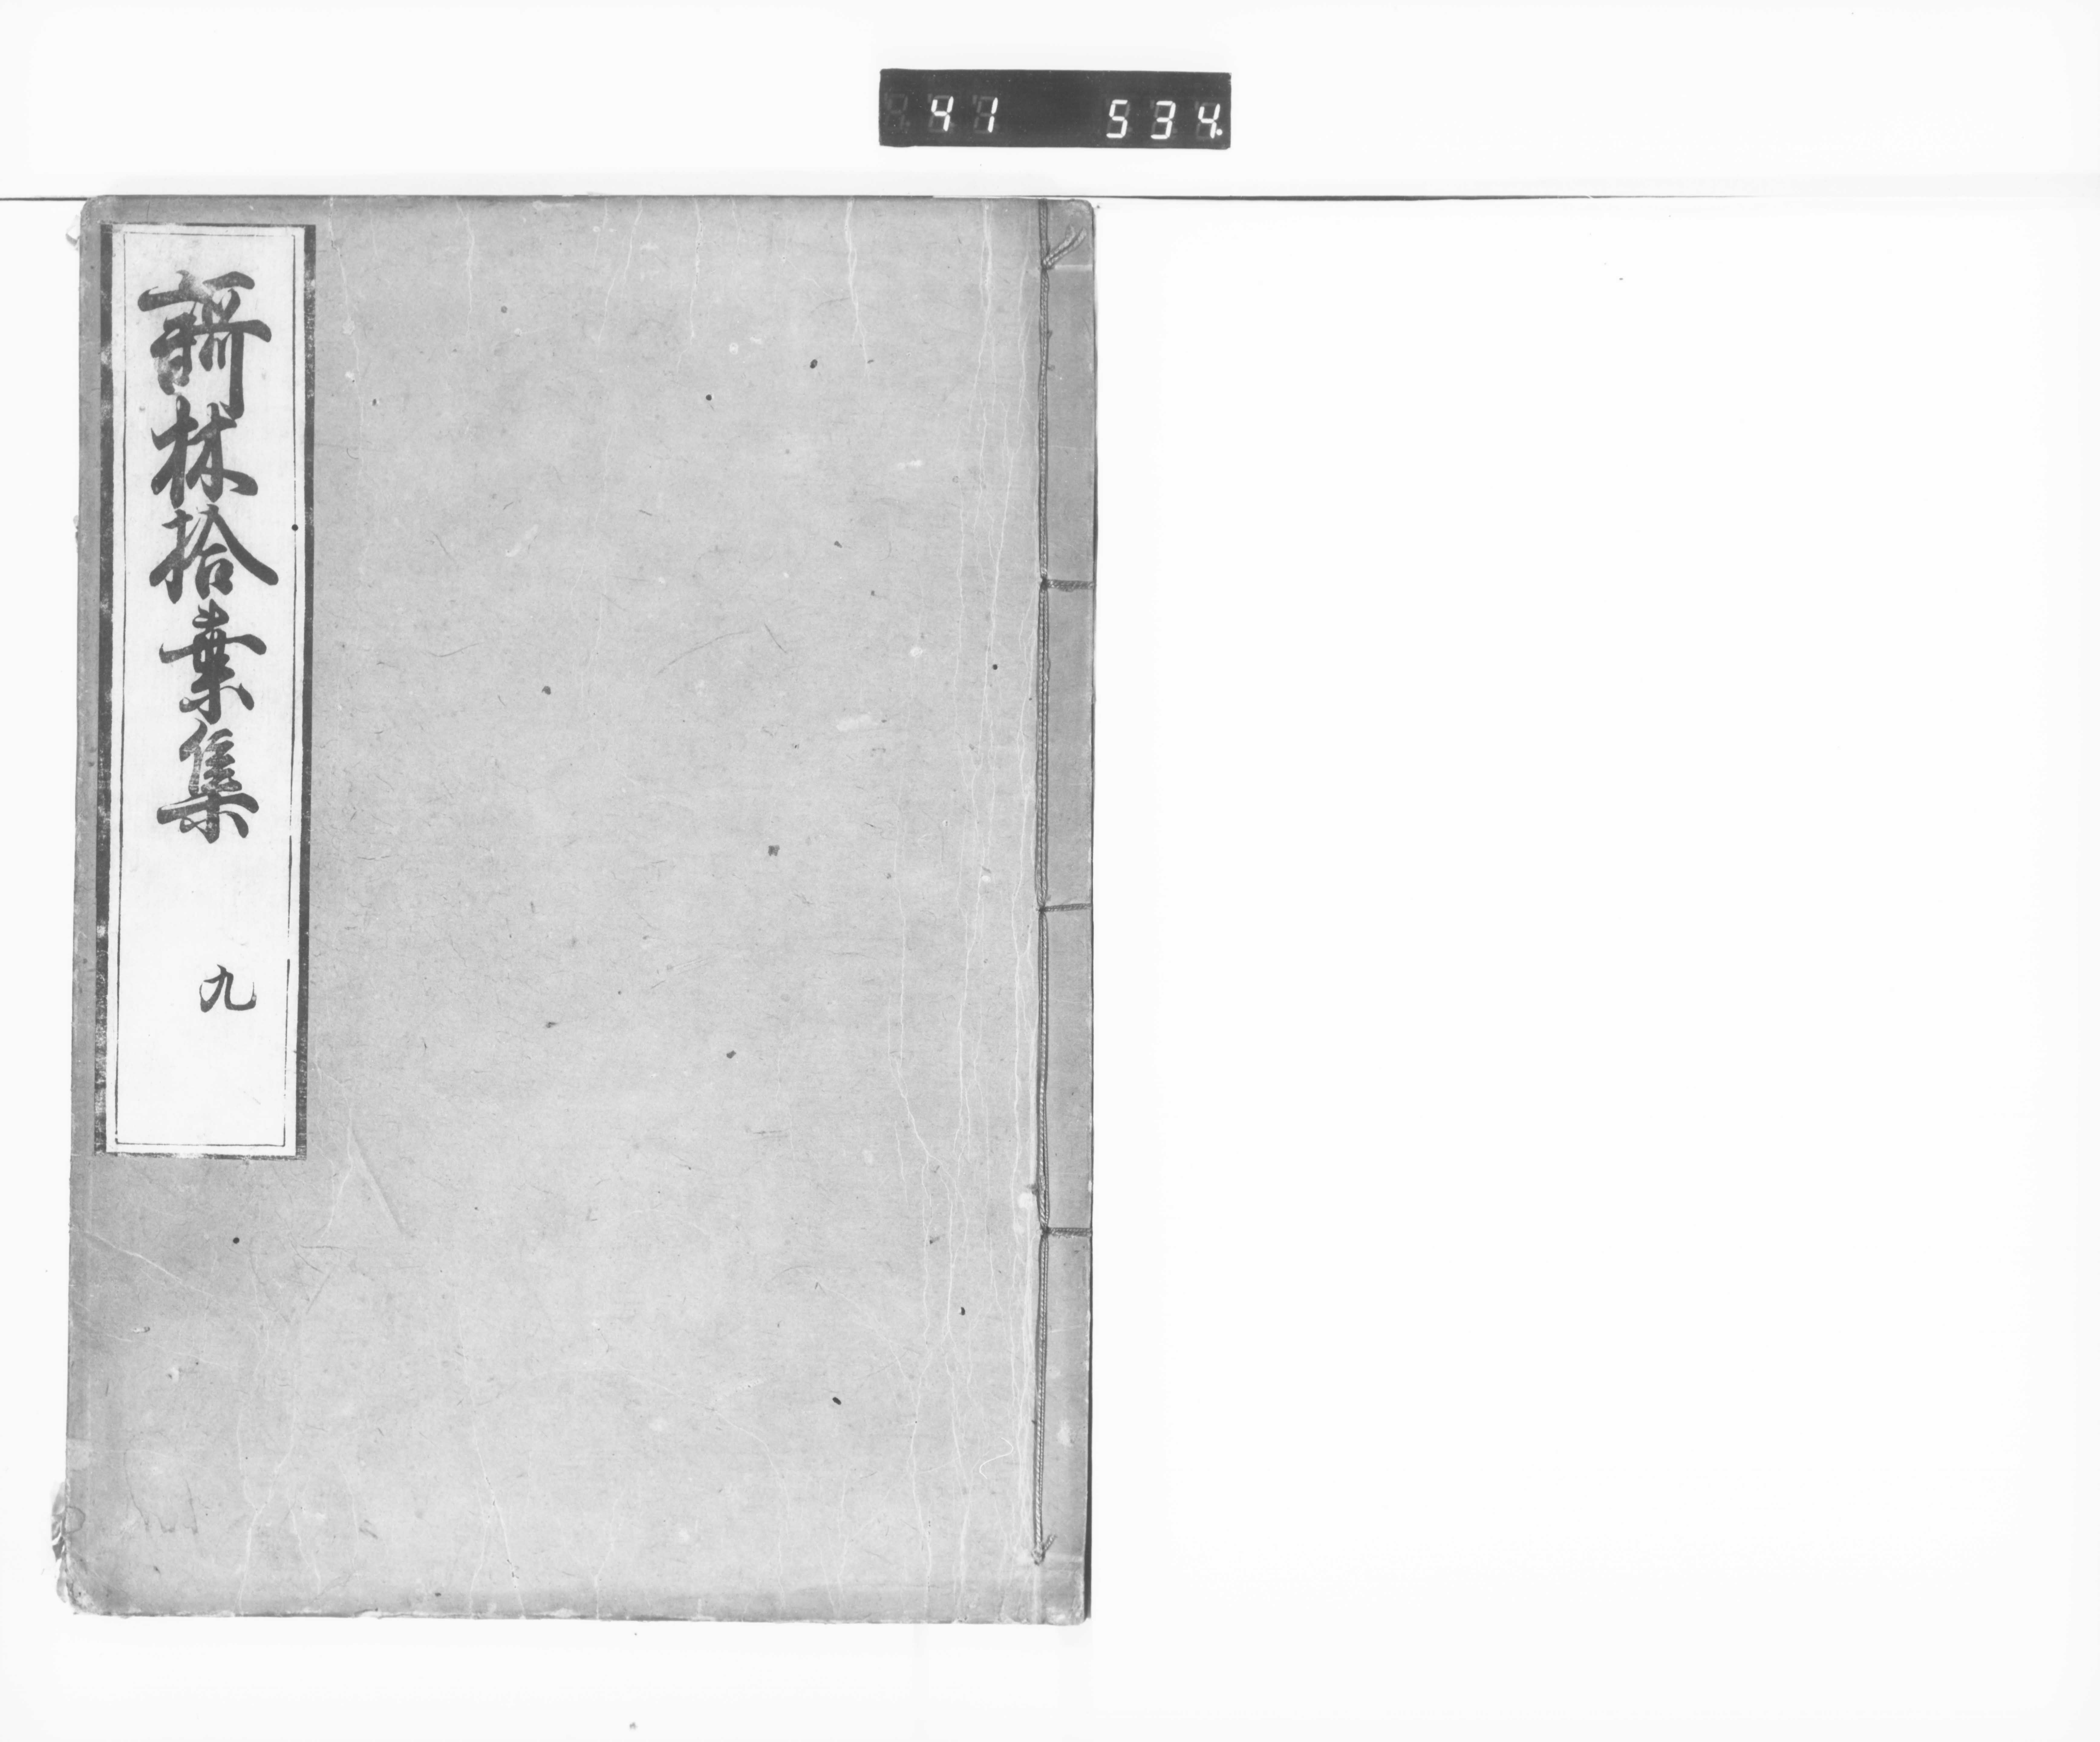 41 534
謌林拾葉集
九